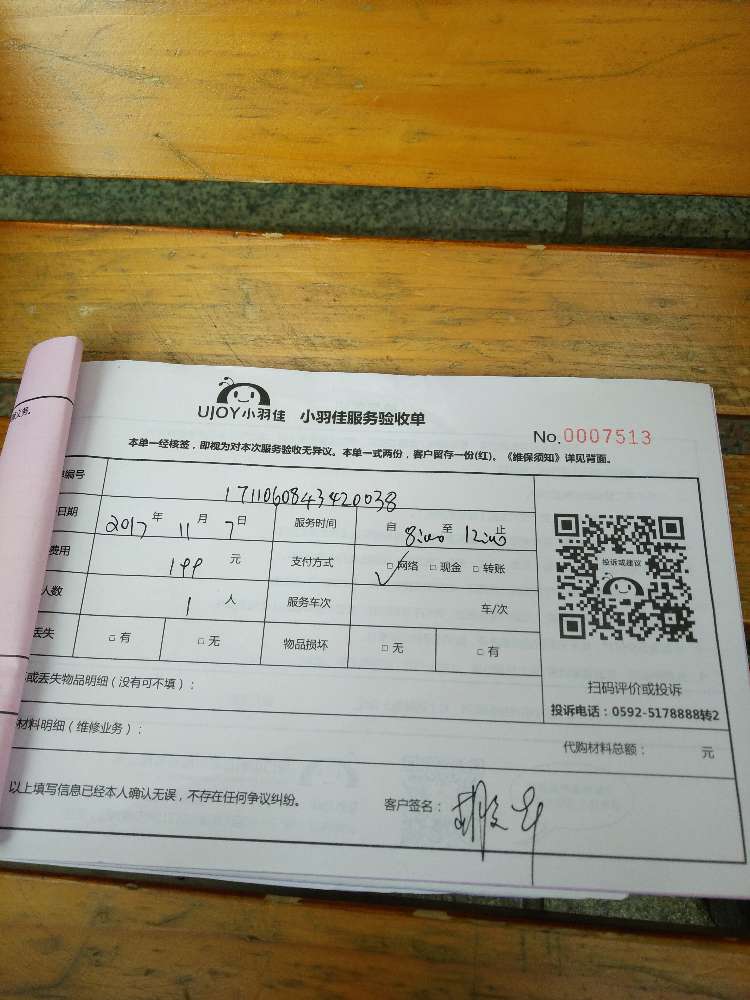 UJOY小羽佳 小羽佳服务验收单
No.0007513
本单一经核签，即视为对本次服务验收无异议。本单一式两份，客户留存一份(红)。《维保须知》详见背面。
编号 1711060843420038
日期 2017 年 11 月 7 日 服务时间 自 8:00 至 12:00 止
费用 199 元 支付方式 □ 网络 □ 现金 □ 转账
人数 1 人 服务车次 车/次
丢失 □ 有 □ 无 物品损坏 □ 无 □ 有
投诉或建议
扫码评价或投诉
投诉电话：0592-5178888转2
或丢失物品明细（没有可不填）：
材料明细（维修业务）： 代购材料总额： 元
以上填写信息已经本人确认无误，不存在任何争议纠纷。 客户签名：